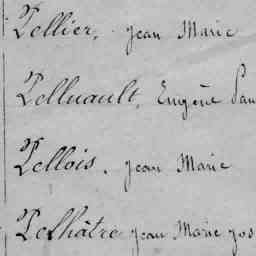 Pellier, Jean Marie
Pelluault, Eugène Pau
Pellois, Jean Marie
Pelhâtre Jean Marie Jos